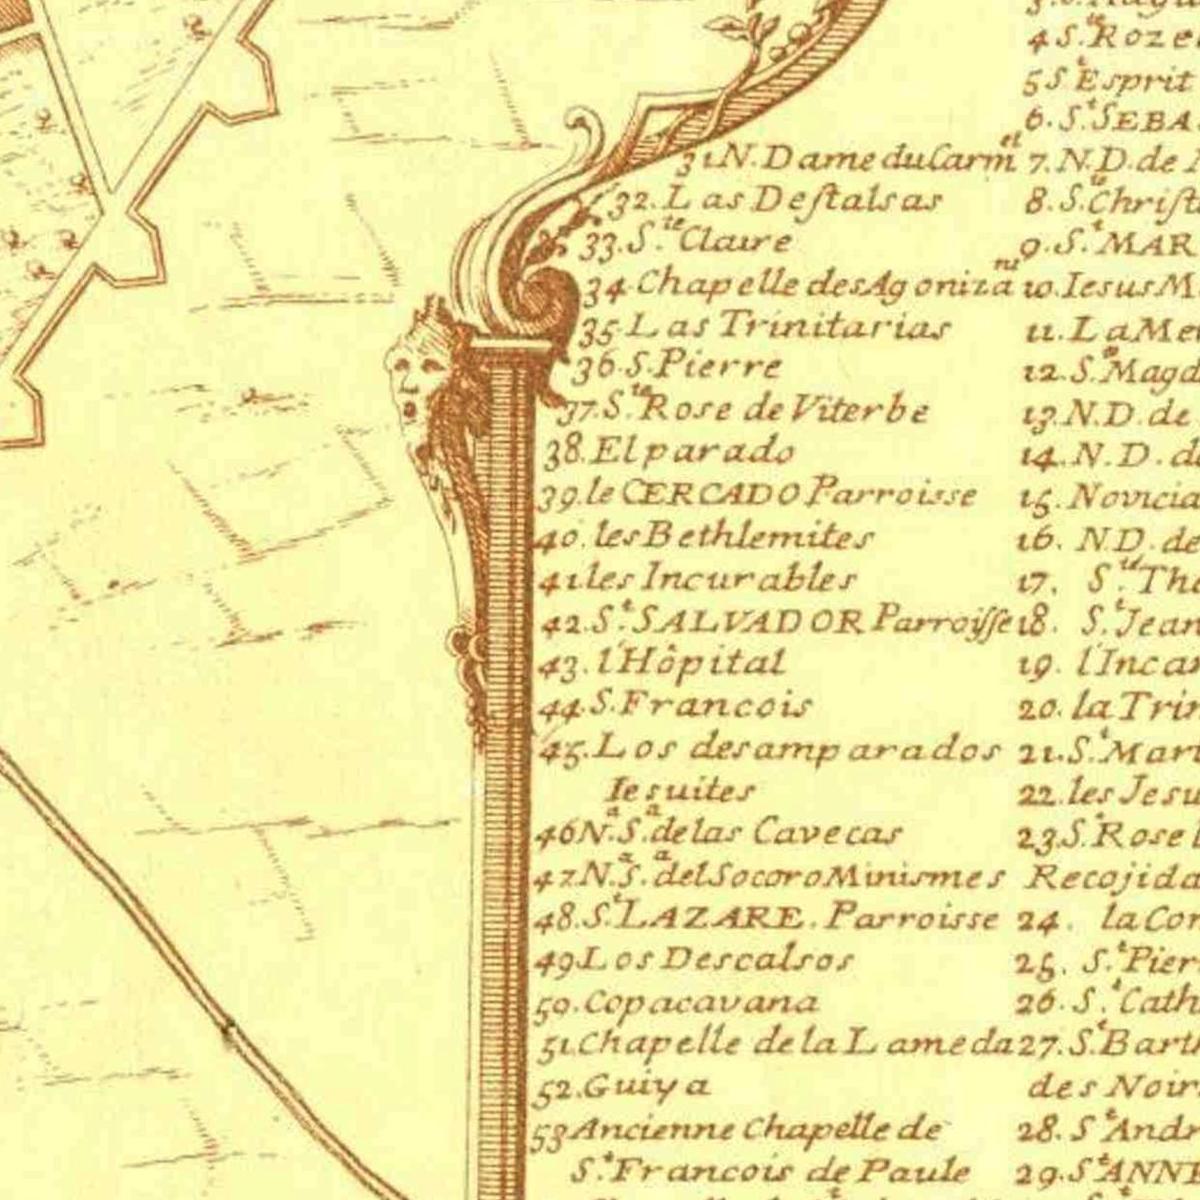 31 N. Dame du Carm.et
32. Las Destalsas
33. S.te Claire
34 Chapelle des Agoniza ns
35 Las Trinitarias
36 S. Pierre
37. S.te Rose de Viterbe
38. El parado
39. le CERCADO Parroisse
40. les Bethlemites
41 les Incurables
42. S.t SALVADOR Parroisse
43. l'Hôpital
44 S. Francois
45. Los desamparados
Iesuites
46 N.a S.a de las Cavecas
47. N.a S.a del Socoro Minismes
48. S.t LAZARE. Parroisse
49 Los Descalsos
50. Copacavana
51. Chapelle de la Lameda
52. Guiya
53 Ancienne Chapelle de
S.t Francois de Paule
4 S.te Roze
5 S.t Esprit
6. S.t SEBA
7. N.D. de
8. S.te Christ
9. S.t MAR
10. Iesus M
11. La Me
12. S.te Magd
13. N.D. de
14. N.D. de
15. Novicia
16. N.D. de
17. S.te Th
18. S.t Jean
19. l'Inca
20. la Trin
21. S.t Mar
22. les Jesu
23. S.te Rose
Recojida
24. la Con
25. S.t Pier
26. S.te Cath
27. S.t Bart
des Noir
28. S.t Andr
29. S.te ANNE